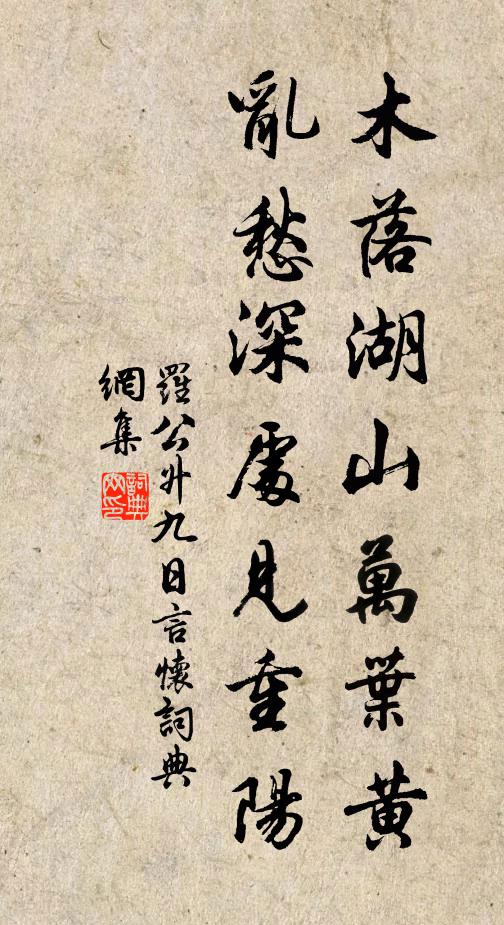 木落湖山萬葉黃
亂愁深處見重陽
羅公升九日言懷詞典
網集
詞典
网印